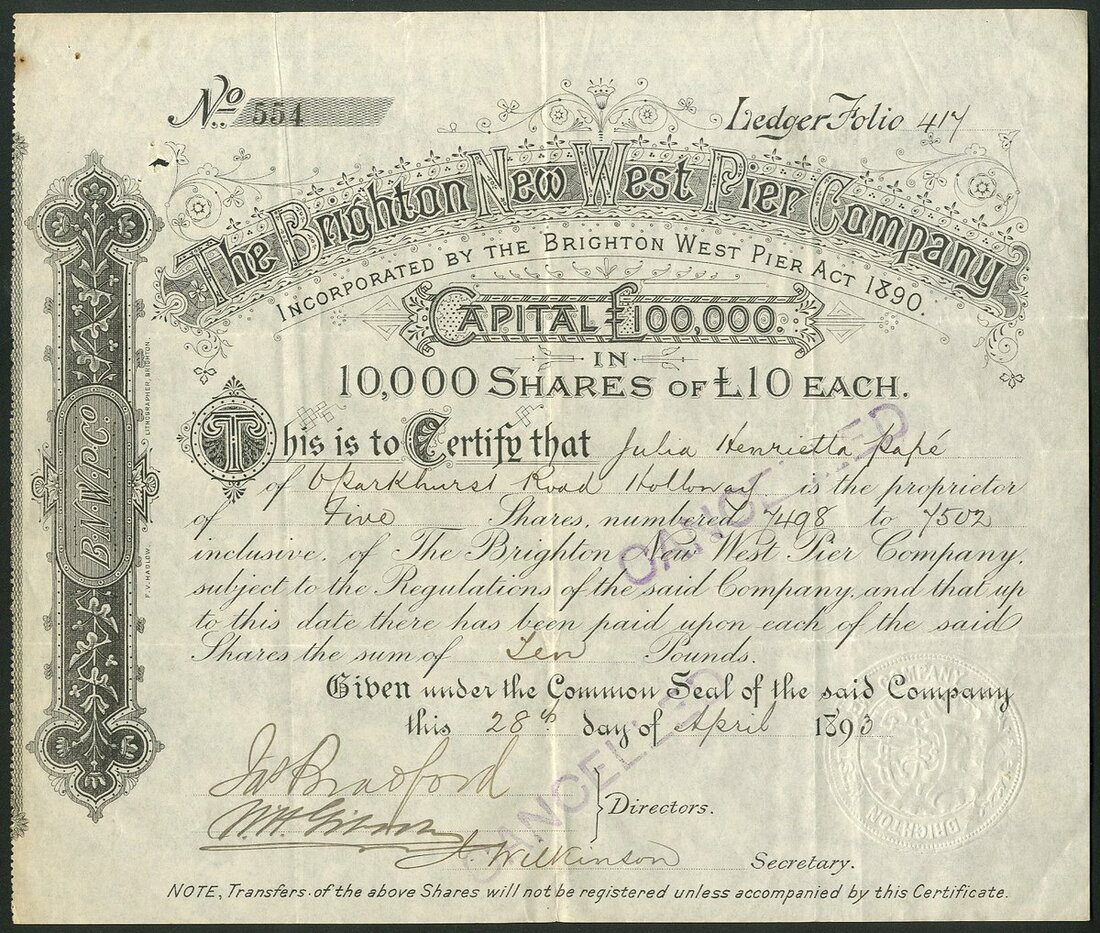 No. 554
Ledger Folio 417
The Brighton New West Pier Company
INCORPORATED BY THE BRIGHTON WEST PIER ACT 1890.
CAPITAL £100,000.
IN
10,000 SHARES OF £10 EACH.
This is to Certify that Julia Henrietta Papé
of Parkhurst Road Holloway is the proprietor
of Five Shares, numbered 7498 to 7502
inclusive, of The Brighton New West Pier Company,
subject to the Regulations of the said Company, and that up
to this date there has been paid upon each of the said
Shares the sum of Ten Pounds.
Given under the Common Seal of the said Company
this 28th day of April 1893
Jas Bradford
Directors.
Wilkinson Secretary.
NOTE, Transfers of the above Shares will not be registered unless accompanied by this Certificate.
B.N.W.P.Co.
F. V. HADLOW, LITHOGRAPHER, BRIGHTON.
CANCELLED
CANCELLED
COMPANY
BRIGHTON